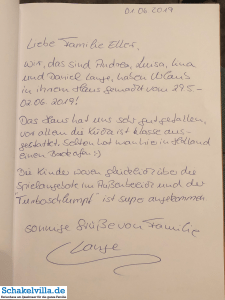 01.06.2019
Liebe Familie Elles,
wir, das sind Andrea, Luisa, Lina
und Daniel Lange, haben Urlaub
in ihrem Haus gemacht vom 27.5-
02.06.2019!
Das Haus hat uns sehr gut gefallen,
vor allem die Küche ist klasse aus-
gestattet. Selten hat man hier in Holland
einen Backofen :)
Die Kinder waren glücklich über die
Spielangebote im Außenbereich und der
"Turboschlumpf" ist super angekommen
sonnige Grüße von Familie
Lange
Schakelvilla.de